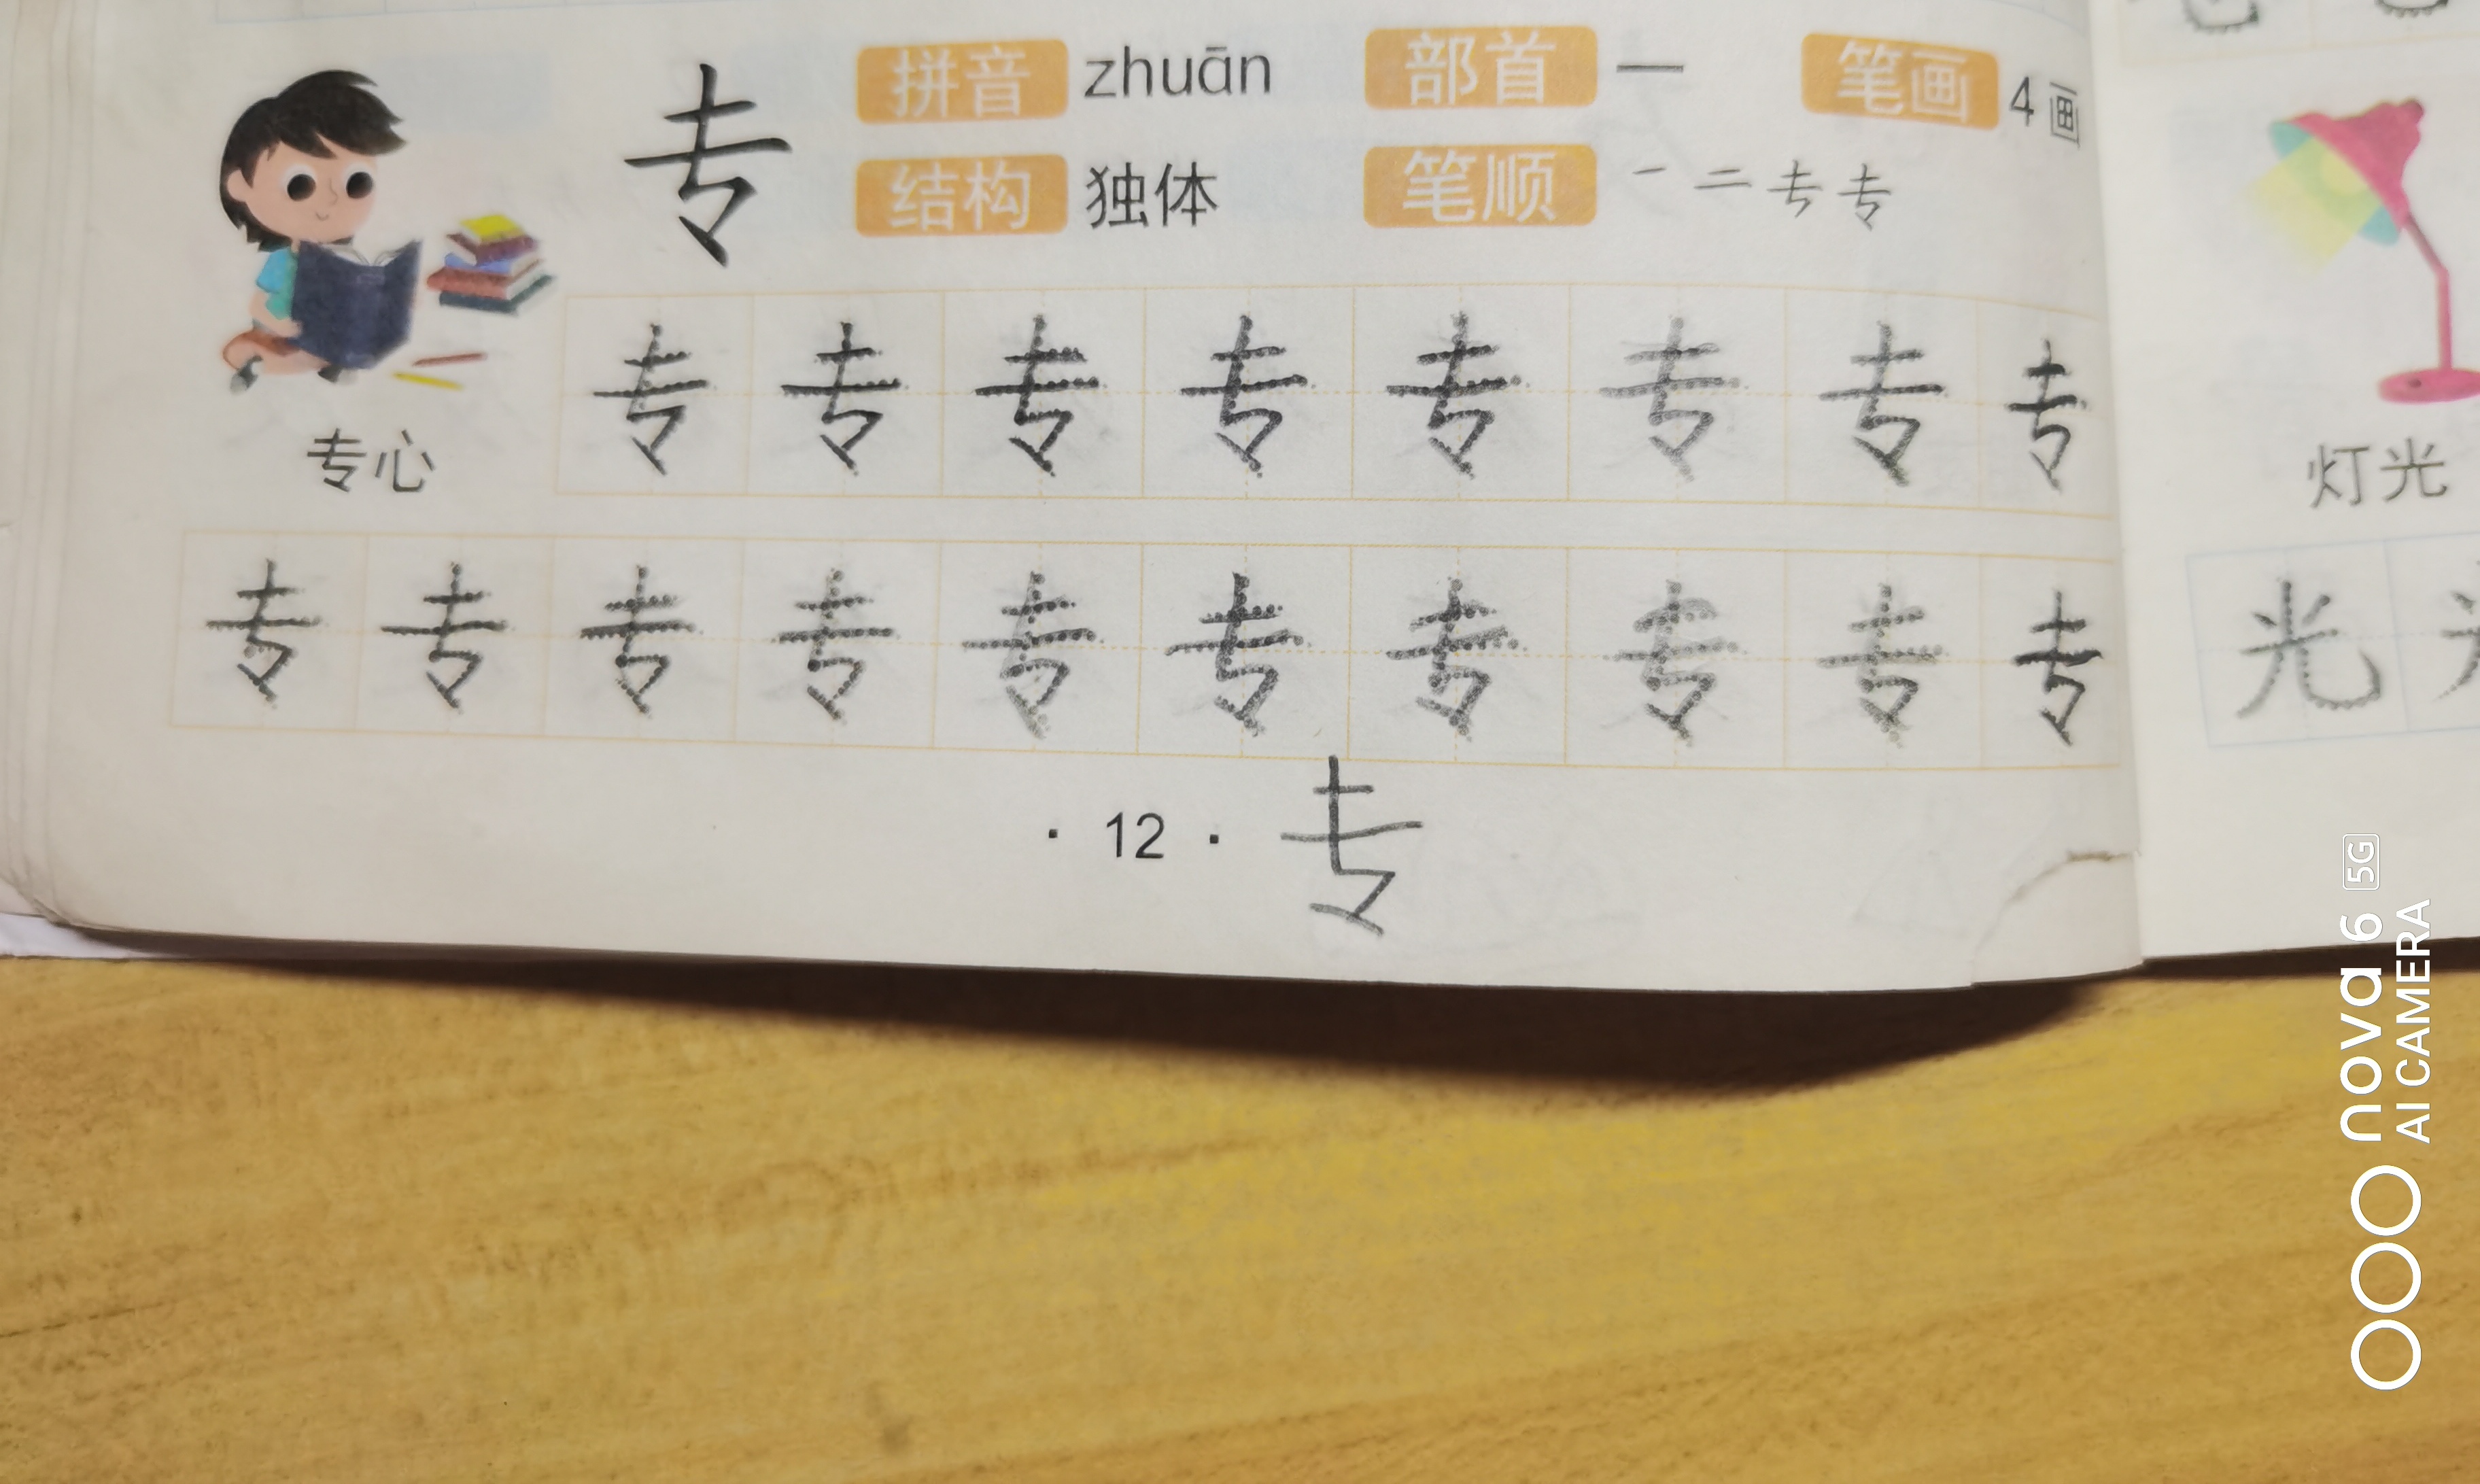 专 拼音 zhuān 部首 一 笔画 4画
结构 独体 笔顺 一 二 专 专
专 专 专 专 专 专 专 专
专心
灯光
专 专 专 专 专 专 专 专 专 专
光
· 12 · 专
nova 6 5G
AI CAMERA